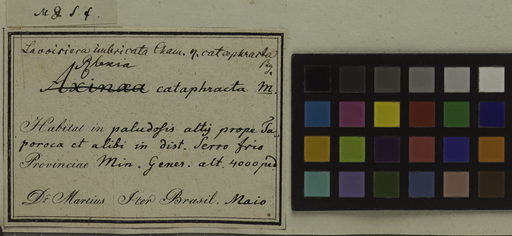 M. G. S. f.
Lavoisiera imbricata Cham. γ. cataphracta
Alexia
Axinaea cataphracta M.
Habitat in paludosis altis prope Ta-
poroca et alibi in dist. Serro frio
Provinciae Min. Gener. alt. 4000 ped
Dr Martius Iter Brasil. Maio